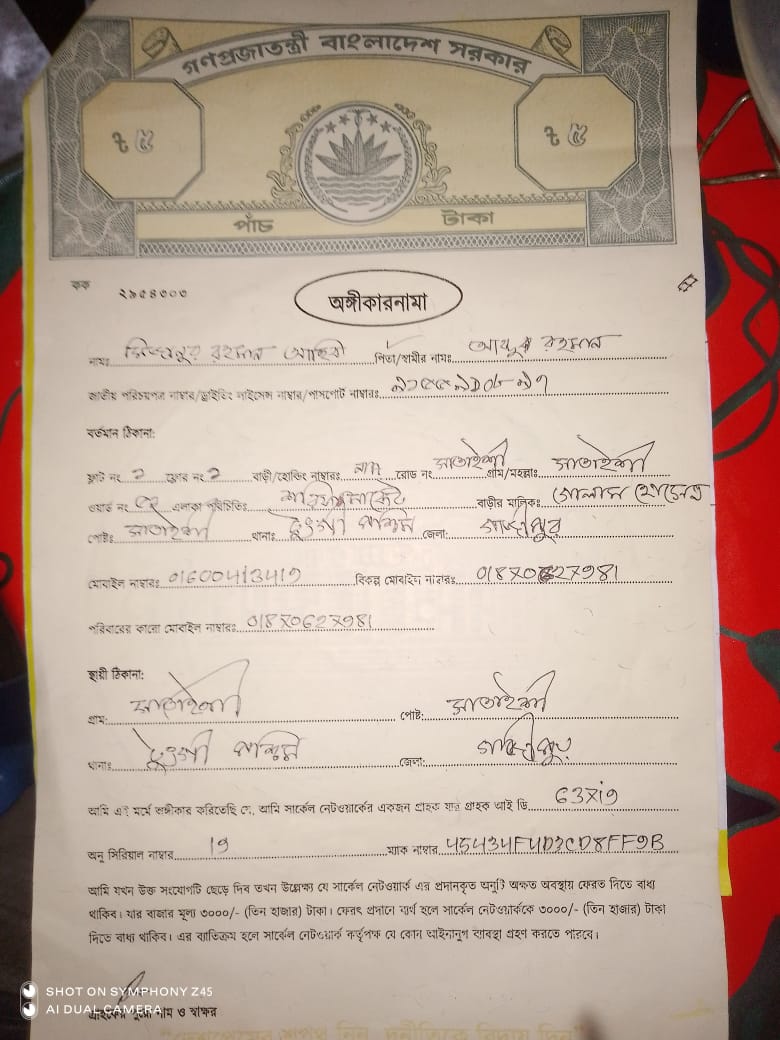 গণপ্রজাতন্ত্রী বাংলাদেশ সরকার
৳ ৫ ৳ ৫
পাঁচ টাকা
কক ২৯৫৪৩০৩
অঙ্গীকারনামা
নামঃ মিজানুর রহমান পিতা/স্বামীর নামঃ রহমান
জাতীয় পরিচয়পত্র নাম্বার/ড্রাইভিং লাইসেন্স নাম্বার/পাসপোর্ট নাম্বারঃ
বর্তমান ঠিকানা:
ফ্লাট নং ২ ফ্লোর নং ২ বাড়ী/হোল্ডিং নাম্বারঃ রোড নং সাতাইশ গ্রাম/মহল্লাঃ সাতাইশ
ওয়ার্ড নং এলাকা পরিচিতিঃ বাড়ীর মালিকঃ গোলাম হোসেন
পোষ্টঃ সাতাইশ থানাঃ টঙ্গী পশ্চিম জেলা: গাজীপুর
মোবাইল নাম্বারঃ 01600413419 বিকল্প মোবাইল নাম্বারঃ
পরিবারের কারো মোবাইল নাম্বারঃ
স্থায়ী ঠিকানা:
গ্রাম: সাতাইশ পোষ্ট: সাতাইশ
থানাঃ টঙ্গী পশ্চিম জেলা: গাজীপুর
আমি এই মর্মে অঙ্গীকার করিতেছি যে, আমি সার্কেল নেটওয়ার্কের একজন গ্রাহক যার গ্রাহক আই ডি
অনু সিরিয়াল নাম্বার 19 ম্যাক নাম্বার
আমি যখন উক্ত সংযোগটি ছেড়ে দিব তখন উল্লেক্ষ্য যে সার্কেল নেটওয়ার্ক এর প্রদানকৃত অনুটি অক্ষত অবস্থায় ফেরত দিতে বাধ্য
থাকিব। যার বাজার মূল্য ৩০০০/- (তিন হাজার) টাকা। ফেরৎ প্রদানে ব্যর্থ হলে সার্কেল নেটওয়ার্ককে ৩০০০/- (তিন হাজার) টাকা
দিতে বাধ্য থাকিব। এর ব্যতিক্রম হলে সার্কেল নেটওয়ার্ক কর্তৃপক্ষ যে কোন আইনানুগ ব্যবস্থা গ্রহণ করতে পারবে।
SHOT ON SYMPHONY Z45
AI DUAL CAMERA
নাম ও স্বাক্ষর